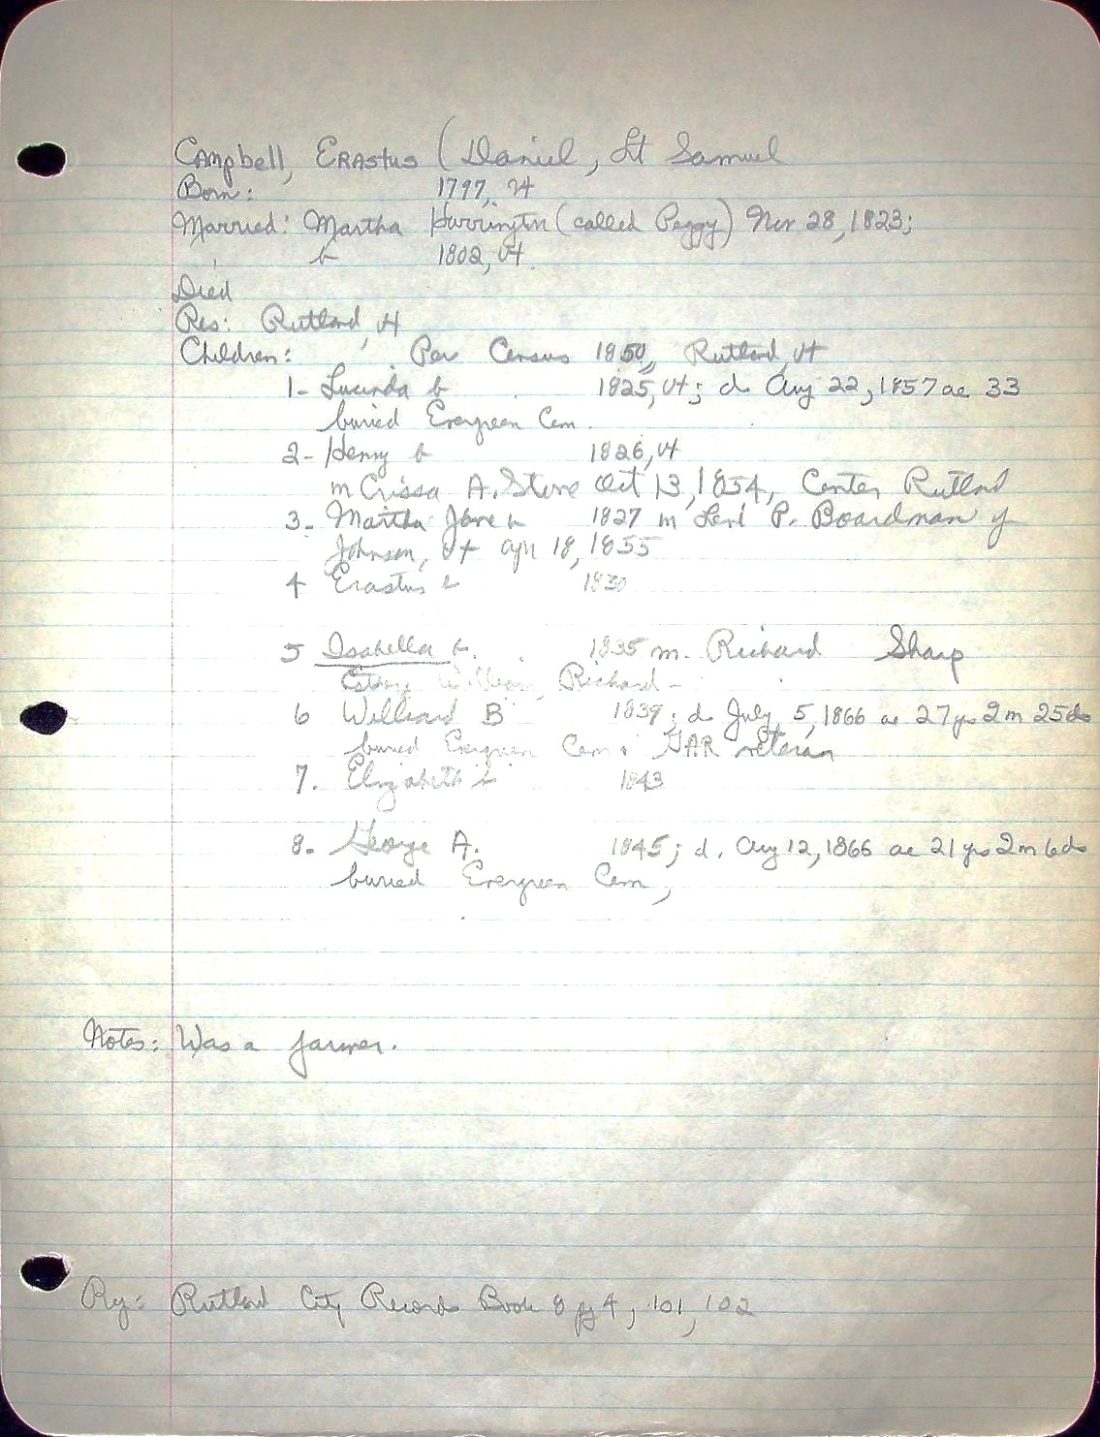 Campbell, Erastus (Daniel, Lt Samuel
Born: 1797, Vt
Married: Martha Harrington (called Peggy) Nov 28, 1823;
b 1802, Vt.
Died
Res: Rutland, Vt
Children: Per Census 1850, Rutland, Vt
1- Lucinda b 1825, Vt; d Aug 22, 1857 ae 33
buried Evergreen Cem.
2- Henry b 1826, Vt
m Crissa A. Stone Oct 13, 1854, Center Rutland
3- Martha Jane b 1827 m Levi P. Boardman of
Johnson, Vt Apr 18, 1855
4 Erastus b 1830
5 Isabella b. 1835 m. Richard Sharp
William, Richard-
6 Williard B 1839; d. July, 5, 1866 ae 27ys 2m 25ds
buried Evergreen Cem. GAR veteran
7. Elizabeth b 1843
8. George A. 1845; d. Aug 12, 1866 ae 21ys 2m 6ds
buried Evergreen Cem,
Notes: Was a farmer.
Rutland City Records Book 8 pg 4, 101, 102